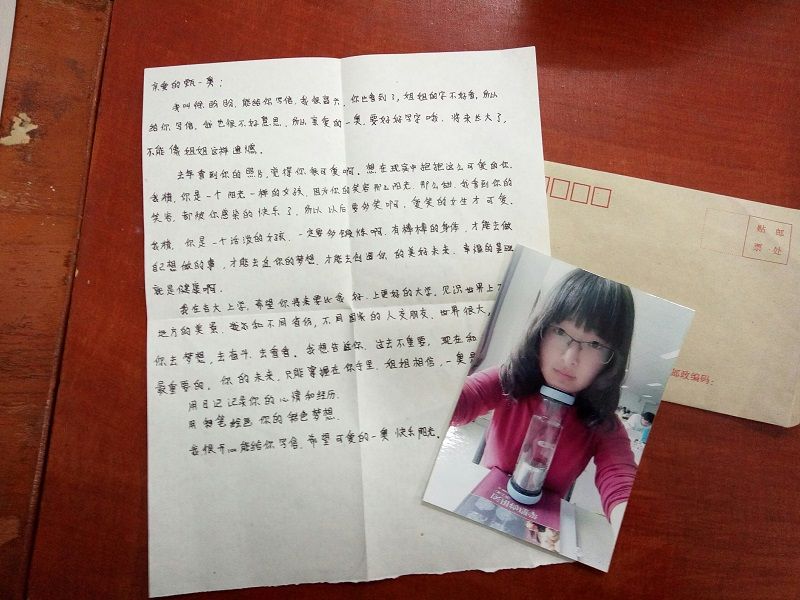 亲爱的甄一奥:
我叫徐盼盼,能给你写信,我很喜欢。你也看到了,姐姐的字不好看,所以
给你写信,我也很不好意思,所以亲爱的一奥,要好好写字哦,将来长大了,
不能像姐姐这样遗憾。
去年看到你的照片,觉得你很可爱啊。想在现实中抱抱这么可爱的你。
我猜,你是一个阳光一样的女孩,因为你的笑容那么阳光,那么甜,我看到你的
笑容,都被你感染的快乐了,所以以后要多笑啊,爱笑的女生才可爱。
我猜,你是一个活泼的女孩,一定要多锻炼啊,有棒棒的身体,才能去做
自己想做的事,才能去追你的梦想,才能去创造你的美好未来,幸福的基础
就是健康啊。
我在吉大上学,希望你将来要比我好,上更好的大学,见识世界上
远方的美景,我和不同省份,不同国家的人交朋友,世界很大,
你去梦想,去奋斗,去看看。我想告诉你,过去不重要,现在和
最重要的,你的未来,只能掌握在你手里,姐姐相信,一奥是
用日记记录你的心情和经历.
用画笔绘画你的彩色梦想.
我很开心能给你写信,希望可爱的一奥快乐阳光。
贴 邮
票 处
邮政编码: